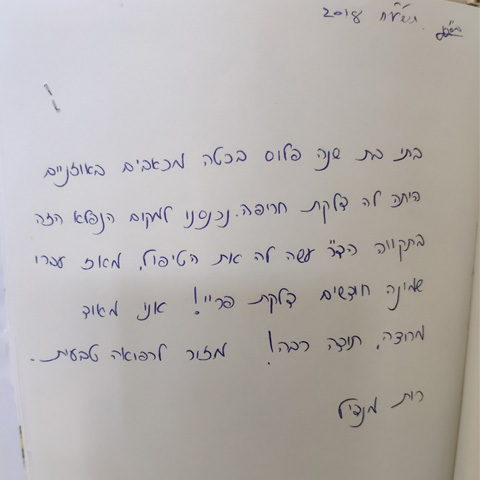 תשע"ח 2018
בתי בת שנה פלוס בכטה מכאבים באוזניים
היתה לה דלקת חריפה. נכנסנו למקום הנפלא הזה
בתקווה הד"ר עשה לה את הטיפול, מאז עברו
שמינה חודשים דלקת פריי! אני מאוד
מרוצה, תודה רבה! מזור לרפואה טבעית.
רות